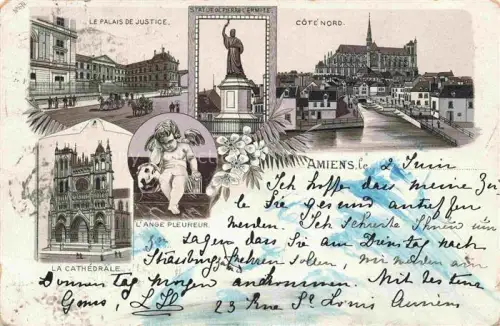 LE PALAIS DE JUSTICE.
STATUE DE PIERRE L'ERMITE
CÔTÉ NORD.
L'ANGE PLEUREUR.
LA CATHÉDRALE
AMIENS, le 2 Juin
Ich hoffe dass meine
Sie gesund antreffen
werden. Ich schreibe Ihnen um
zu sagen dass Sie am Dienstag nach
Strassburg sollen, wir
Donnerstag morgen ankommen. Mit besten
Grüss, 23 Rue St Louis Amiens